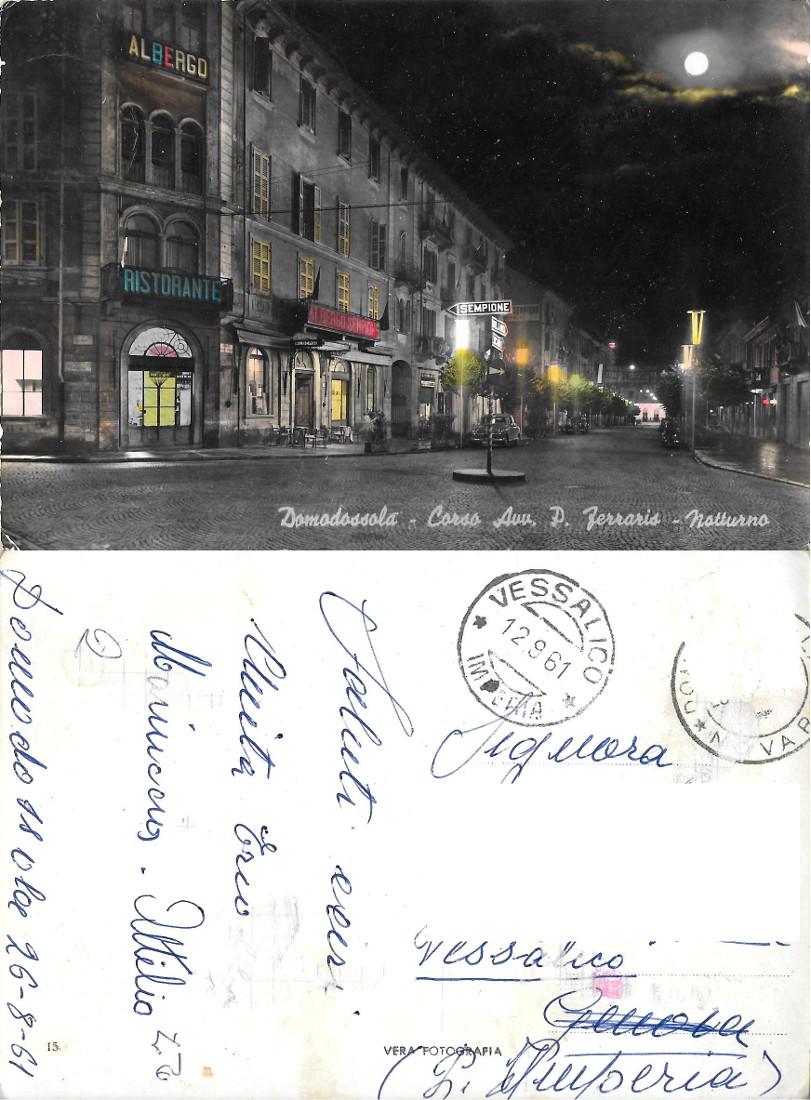 ALBERGO
RISTORANTE
ALBERGO SEMPIONE
SEMPIONE
Domodossola - Corso Avv. P. Ferraris - Notturno
VESSALICO
12.9.61
IMPERIA
Saluti cari
Attilio
Domodossola 26-8-61
Signora
Vessalico
Genova
(P. Imperia)
15
VERA FOTOGRAFIA